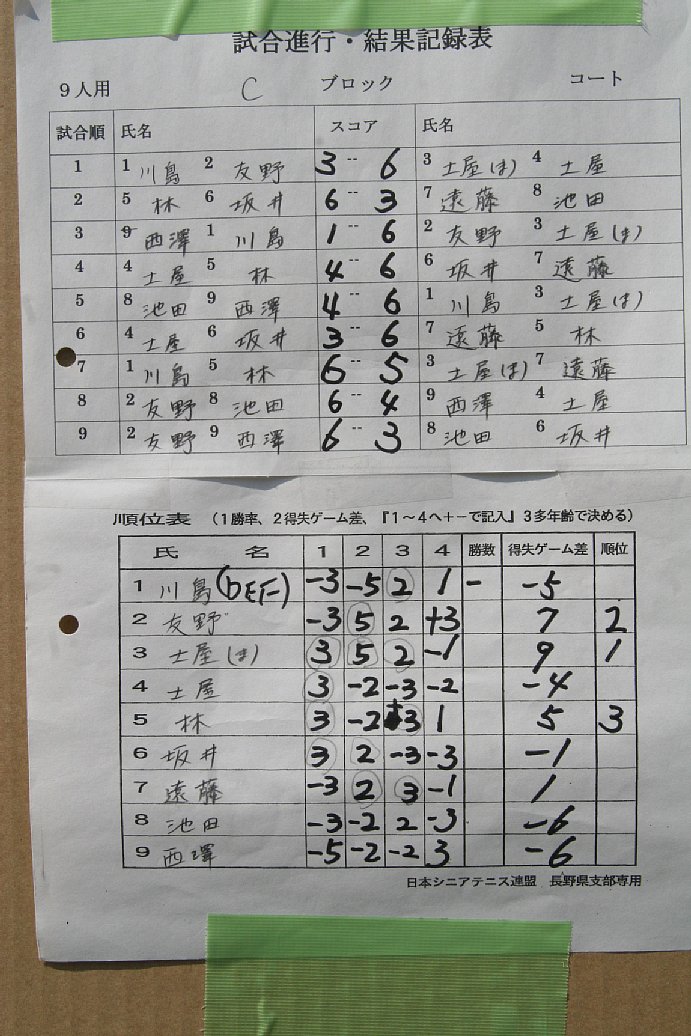 試合進行・結果記録表
9人用 C ブロック コート
試合順 氏名 スコア 氏名
1 1 川島 2 友野 3 -- 6 3 土屋(ま) 4 土屋
2 5 林 6 坂井 6 -- 3 7 遠藤 8 池田
3 9 西澤 1 川島 1 -- 6 2 友野 3 土屋(ま)
4 4 土屋 5 林 4 -- 6 6 坂井 7 遠藤
5 8 池田 9 西澤 4 -- 6 1 川島 3 土屋(ま)
6 4 土屋 6 坂井 3 -- 6 7 遠藤 5 林
7 1 川島 5 林 6 -- 5 3 土屋(ま) 7 遠藤
8 2 友野 8 池田 6 -- 4 9 西澤 4 土屋
9 2 友野 9 西澤 6 -- 3 8 池田 6 坂井
順位表 (1勝率、2得失ゲーム差、『1～4へ+-で記入』3多年齢で決める)
氏 名 1 2 3 4 勝数 得失ゲーム差 順位
1 川島(DEF) -3 -5 2 1 - -5
2 友野 -3 5 2 +3 7 2
3 土屋(ま) 3 5 2 -1 9 1
4 土屋 3 -2 -3 -2 -4
5 林 3 -2 +3 1 5 3
6 坂井 3 2 -3 -3 -1
7 遠藤 -3 2 3 -1 1
8 池田 -3 -2 2 -3 -6
9 西澤 -5 -2 -2 3 -6
日本シニアテニス連盟 長野県支部専用